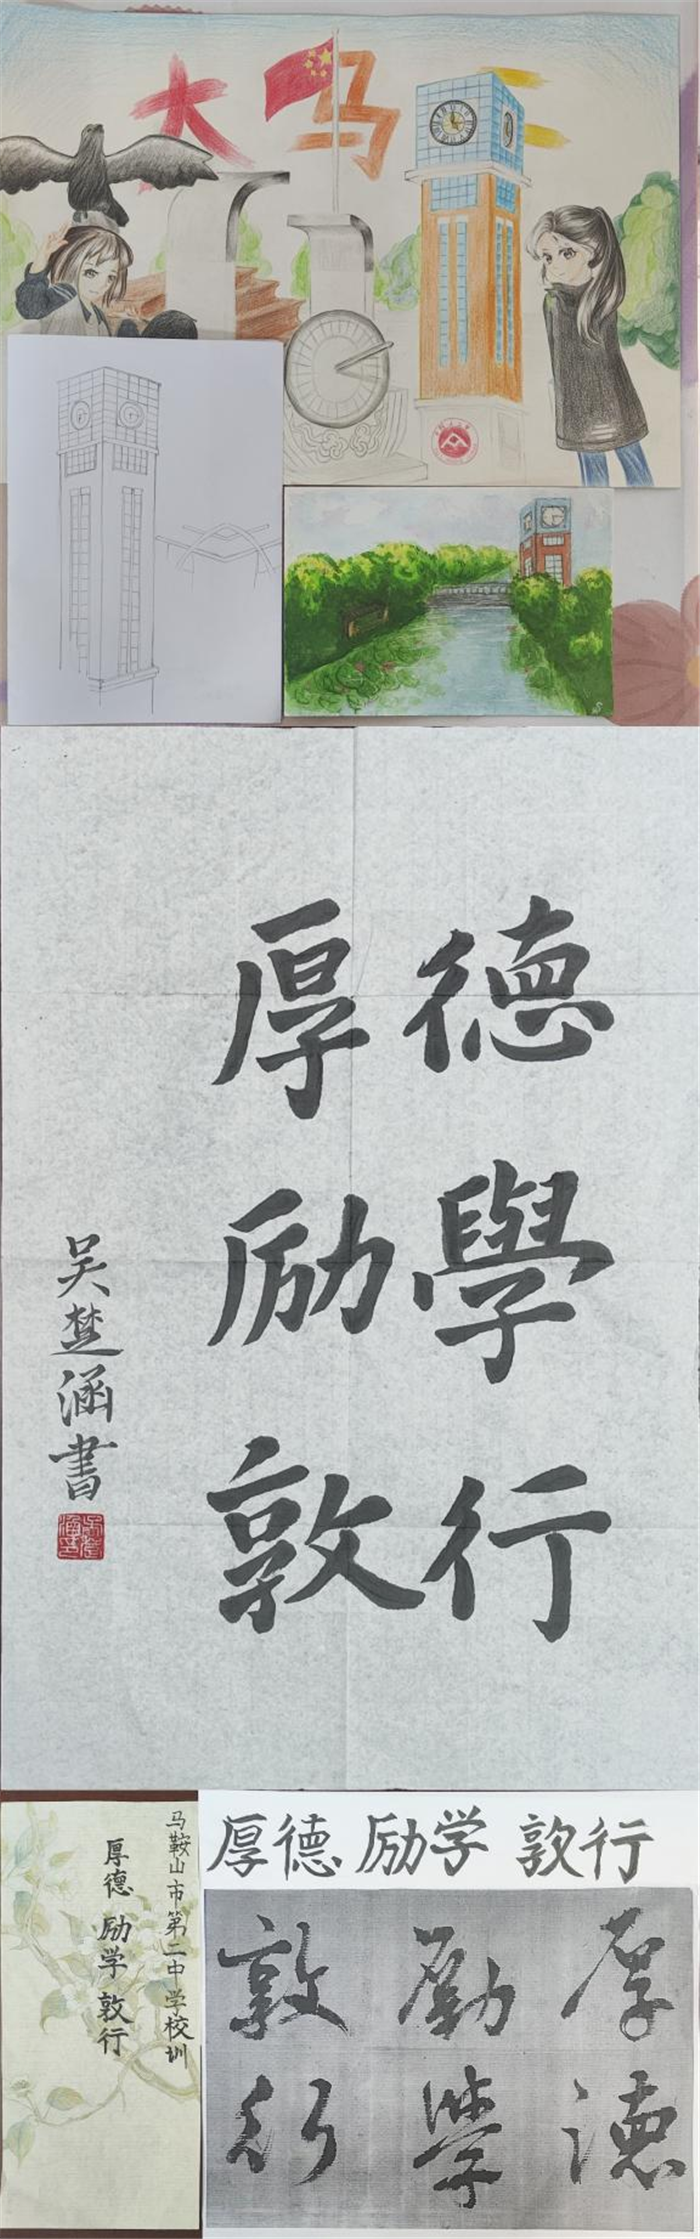 大马二
厚德
励學
敦行
吴楚涵書
马鞍山市第二中学校训
厚德 励学 敦行
厚德 励学 敦行
厚德
勵學
敦行